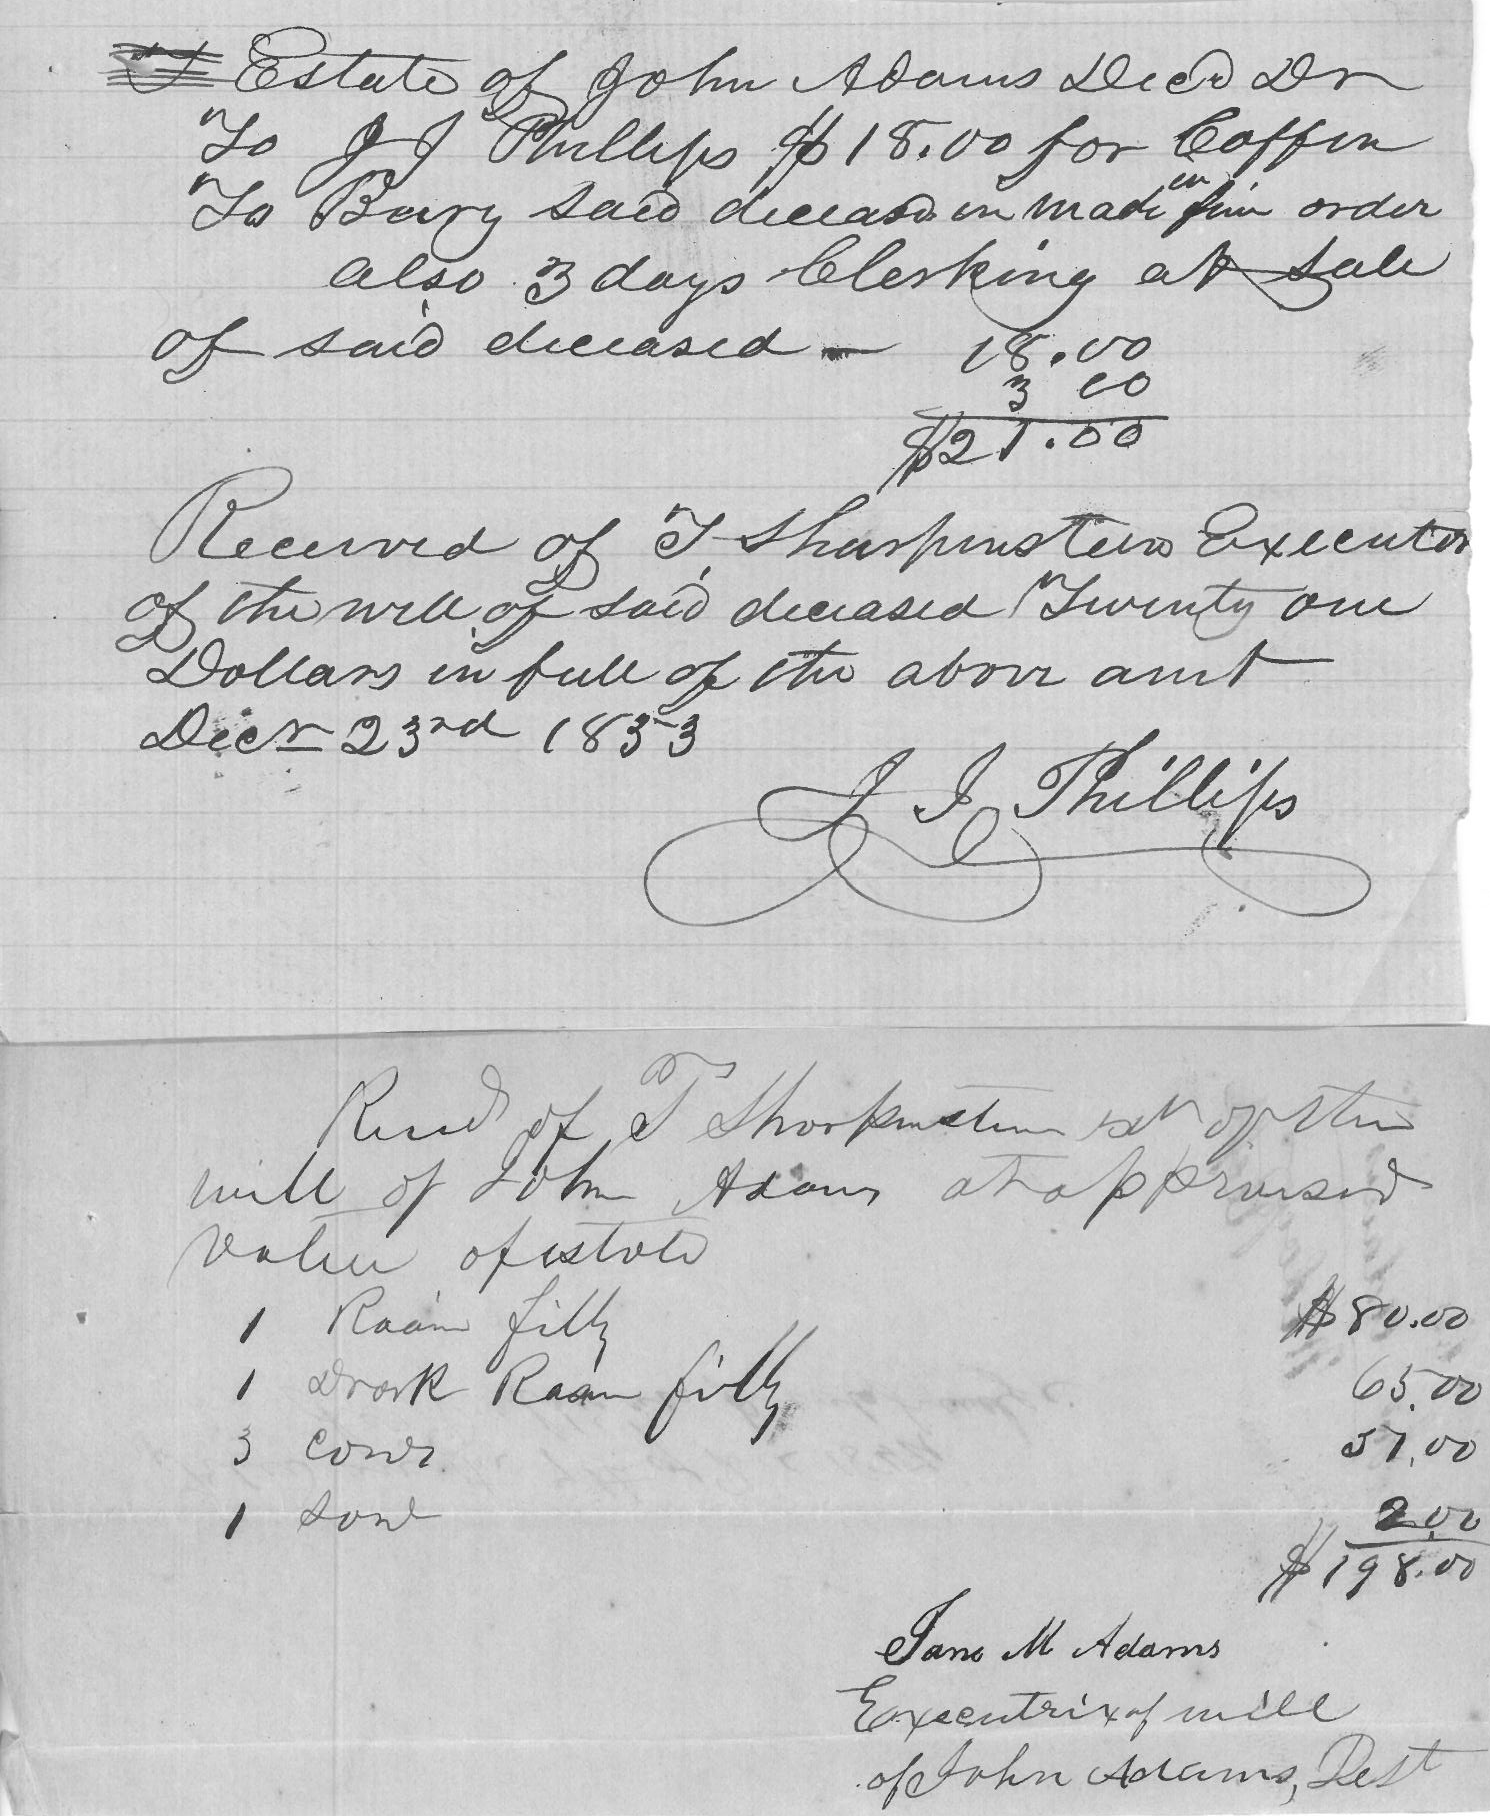 Estate of John Adams Decd Dr
To J J Phillips $18.00 for Coffin
To Bury said deceasd in made in fine order
also 3 days Clerking at Sale
of said deceased - 18.00
3 00
$21.00
Received of T Sharpenstein Executor
of the will of said deceased Twenty one
Dollars in full of the above amt
Decr 23rd 1853
J J Phillips
Recd of T Sharpenstein of the
will of John Adams at appraised
value of estate
1 Roan filly $80.00
1 Drark Roan filly 65.00
3 Cows 51.00
1 Sow 2.00
$198.00
Jane M Adams
Executrix of will
of John Adams, Dest